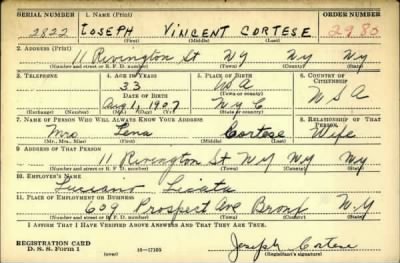 SERIAL NUMBER 1. NAME (Print) ORDER NUMBER
2822 JOSEPH VINCENT CORTESE 2985
(First) (Middle) (Last)
2. ADDRESS (Print)
11 Rivington St NY NY NY
(Number and street or R. F. D. number) (Town) (County) (State)
3. TELEPHONE 4. AGE IN YEARS 5. PLACE OF BIRTH 6. COUNTRY OF CITIZENSHIP
33 USA
DATE OF BIRTH (Town or county)
Aug 1, 1907 NYC USA
(Exchange) (Number) (Mo.) (Day) (Yr.) (State or country)
7. NAME OF PERSON WHO WILL ALWAYS KNOW YOUR ADDRESS 8. RELATIONSHIP OF THAT PERSON
Mrs Lena Cortese Wife
(Mr., Mrs., Miss) (First) (Middle) (Last)
9. ADDRESS OF THAT PERSON
11 Rivington St NY NY NY
(Number and street or R. F. D. number) (Town) (County) (State)
10. EMPLOYER'S NAME
Luciano Licata
11. PLACE OF EMPLOYMENT OR BUSINESS
609 Prospect Ave Bronx N.Y
(Number and street or R. F. D. number) (Town) (County) (State)
I AFFIRM THAT I HAVE VERIFIED ABOVE ANSWERS AND THAT THEY ARE TRUE.
REGISTRATION CARD
D. S. S. Form 1 (over) 16—17105 Joseph Cortese
(Registrant's signature)